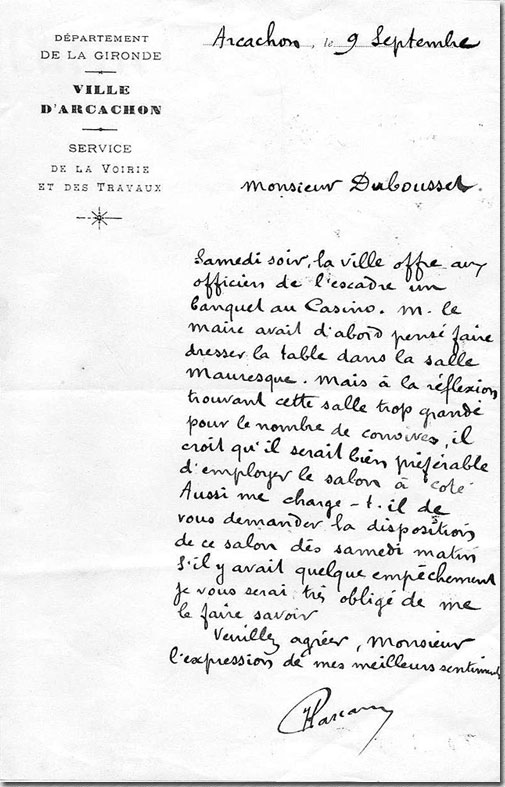 DÉPARTEMENT
DE LA GIRONDE
VILLE
D'ARCACHON
SERVICE
DE LA VOIRIE
ET DES TRAVAUX
Arcachon, le 9 Septembre
Monsieur Dubousset.
Samedi soir, la ville offre aux
officiers de l'escadre un
banquet au Casino. M. le
maire avait d'abord pensé faire
dresser la table dans la salle
mauresque. Mais à la réflexion
trouvant cette salle trop grande
pour le nombre de convives, il
croit qu'il serait bien préférable
d'employer le salon à coté
Aussi me charge-t-il de
vous demander la disposition
de ce salon dès samedi matin
S'il y avait quelque empêchement
je vous serai très obligé de me
le faire savoir
Veuillez agréer, Monsieur
l'expression de mes meilleurs sentiments